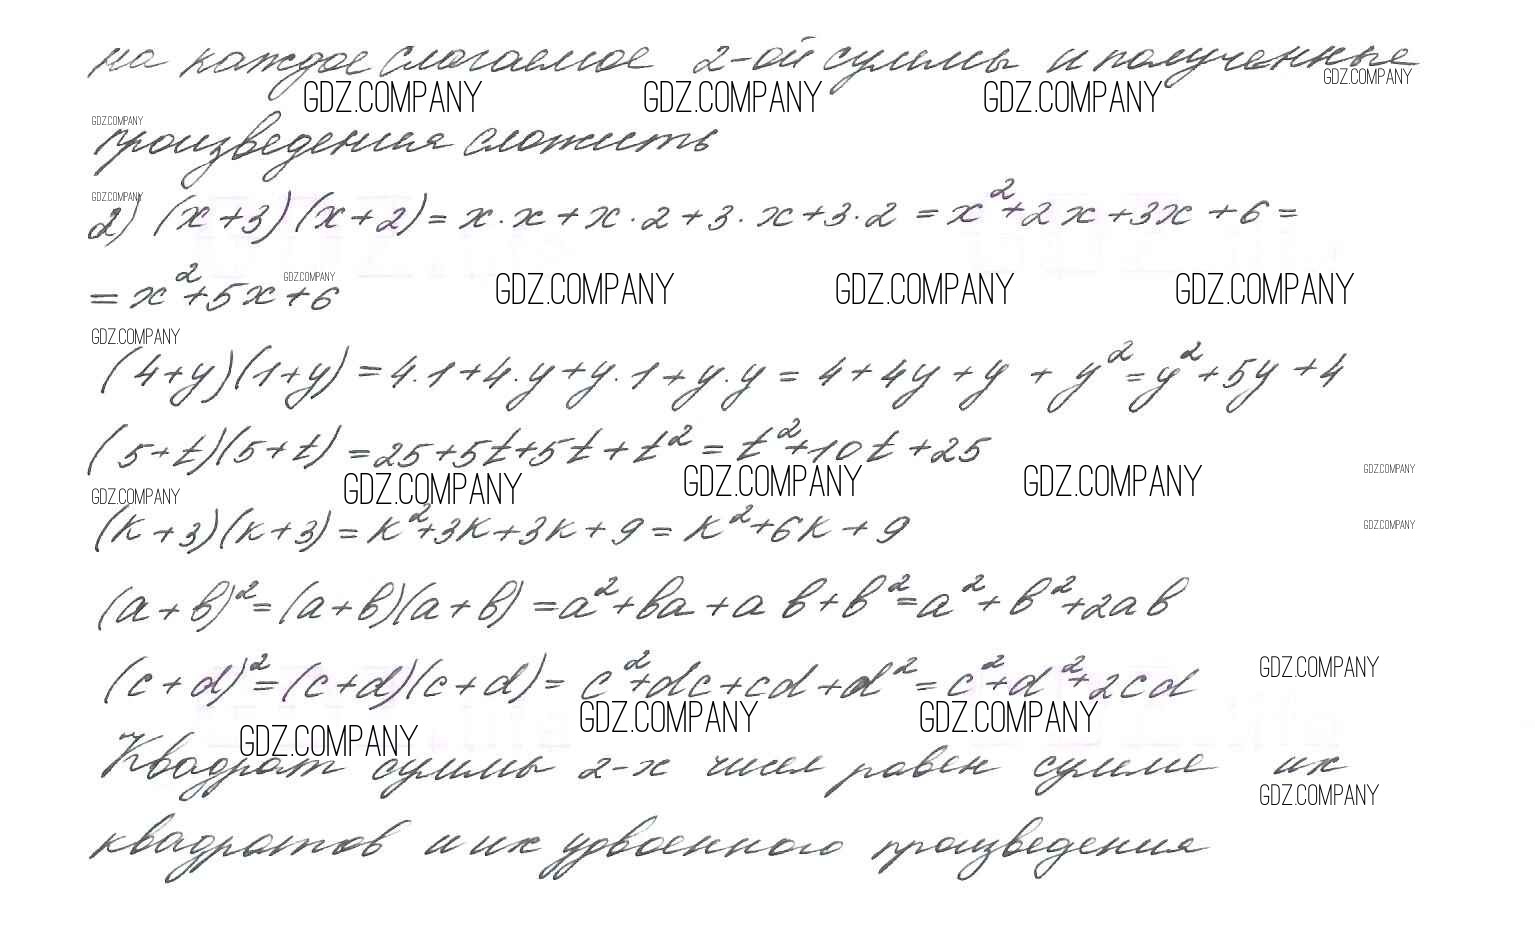 на каждое слагаемое 2-ой суммы и полученные
GDZ.COMPANY GDZ.COMPANY GDZ.COMPANY GDZ.COMPANY
GDZ.COMPANY
произведения сложить
GDZ.COMPANY
2) (x+3)(x+2)=x·x+x·2+3·x+3·2=x²+2x+3x+6=
=x²+5x+6
GDZ.COMPANY GDZ.COMPANY GDZ.COMPANY GDZ.COMPANY
GDZ.COMPANY
(4+y)(1+y)=4·1+4·y+y·1+y·y=4+4y+y+y²=y²+5y+4
(5+t)(5+t)=25+5t+5t+t²=t²+10t+25
GDZ.COMPANY GDZ.COMPANY GDZ.COMPANY GDZ.COMPANY GDZ.COMPANY
(k+3)(k+3)=k²+3k+3k+9=k²+6k+9
GDZ.COMPANY
(a+b)²=(a+b)(a+b)=a²+ba+ab+b²=a²+b²+2ab
(c+d)²=(c+d)(c+d)=c²+dc+cd+d²=c²+d²+2cd
GDZ.COMPANY
GDZ.COMPANY GDZ.COMPANY GDZ.COMPANY
Квадрат суммы 2-х чисел равен сумме их
GDZ.COMPANY
квадратов и их удвоенного произведения